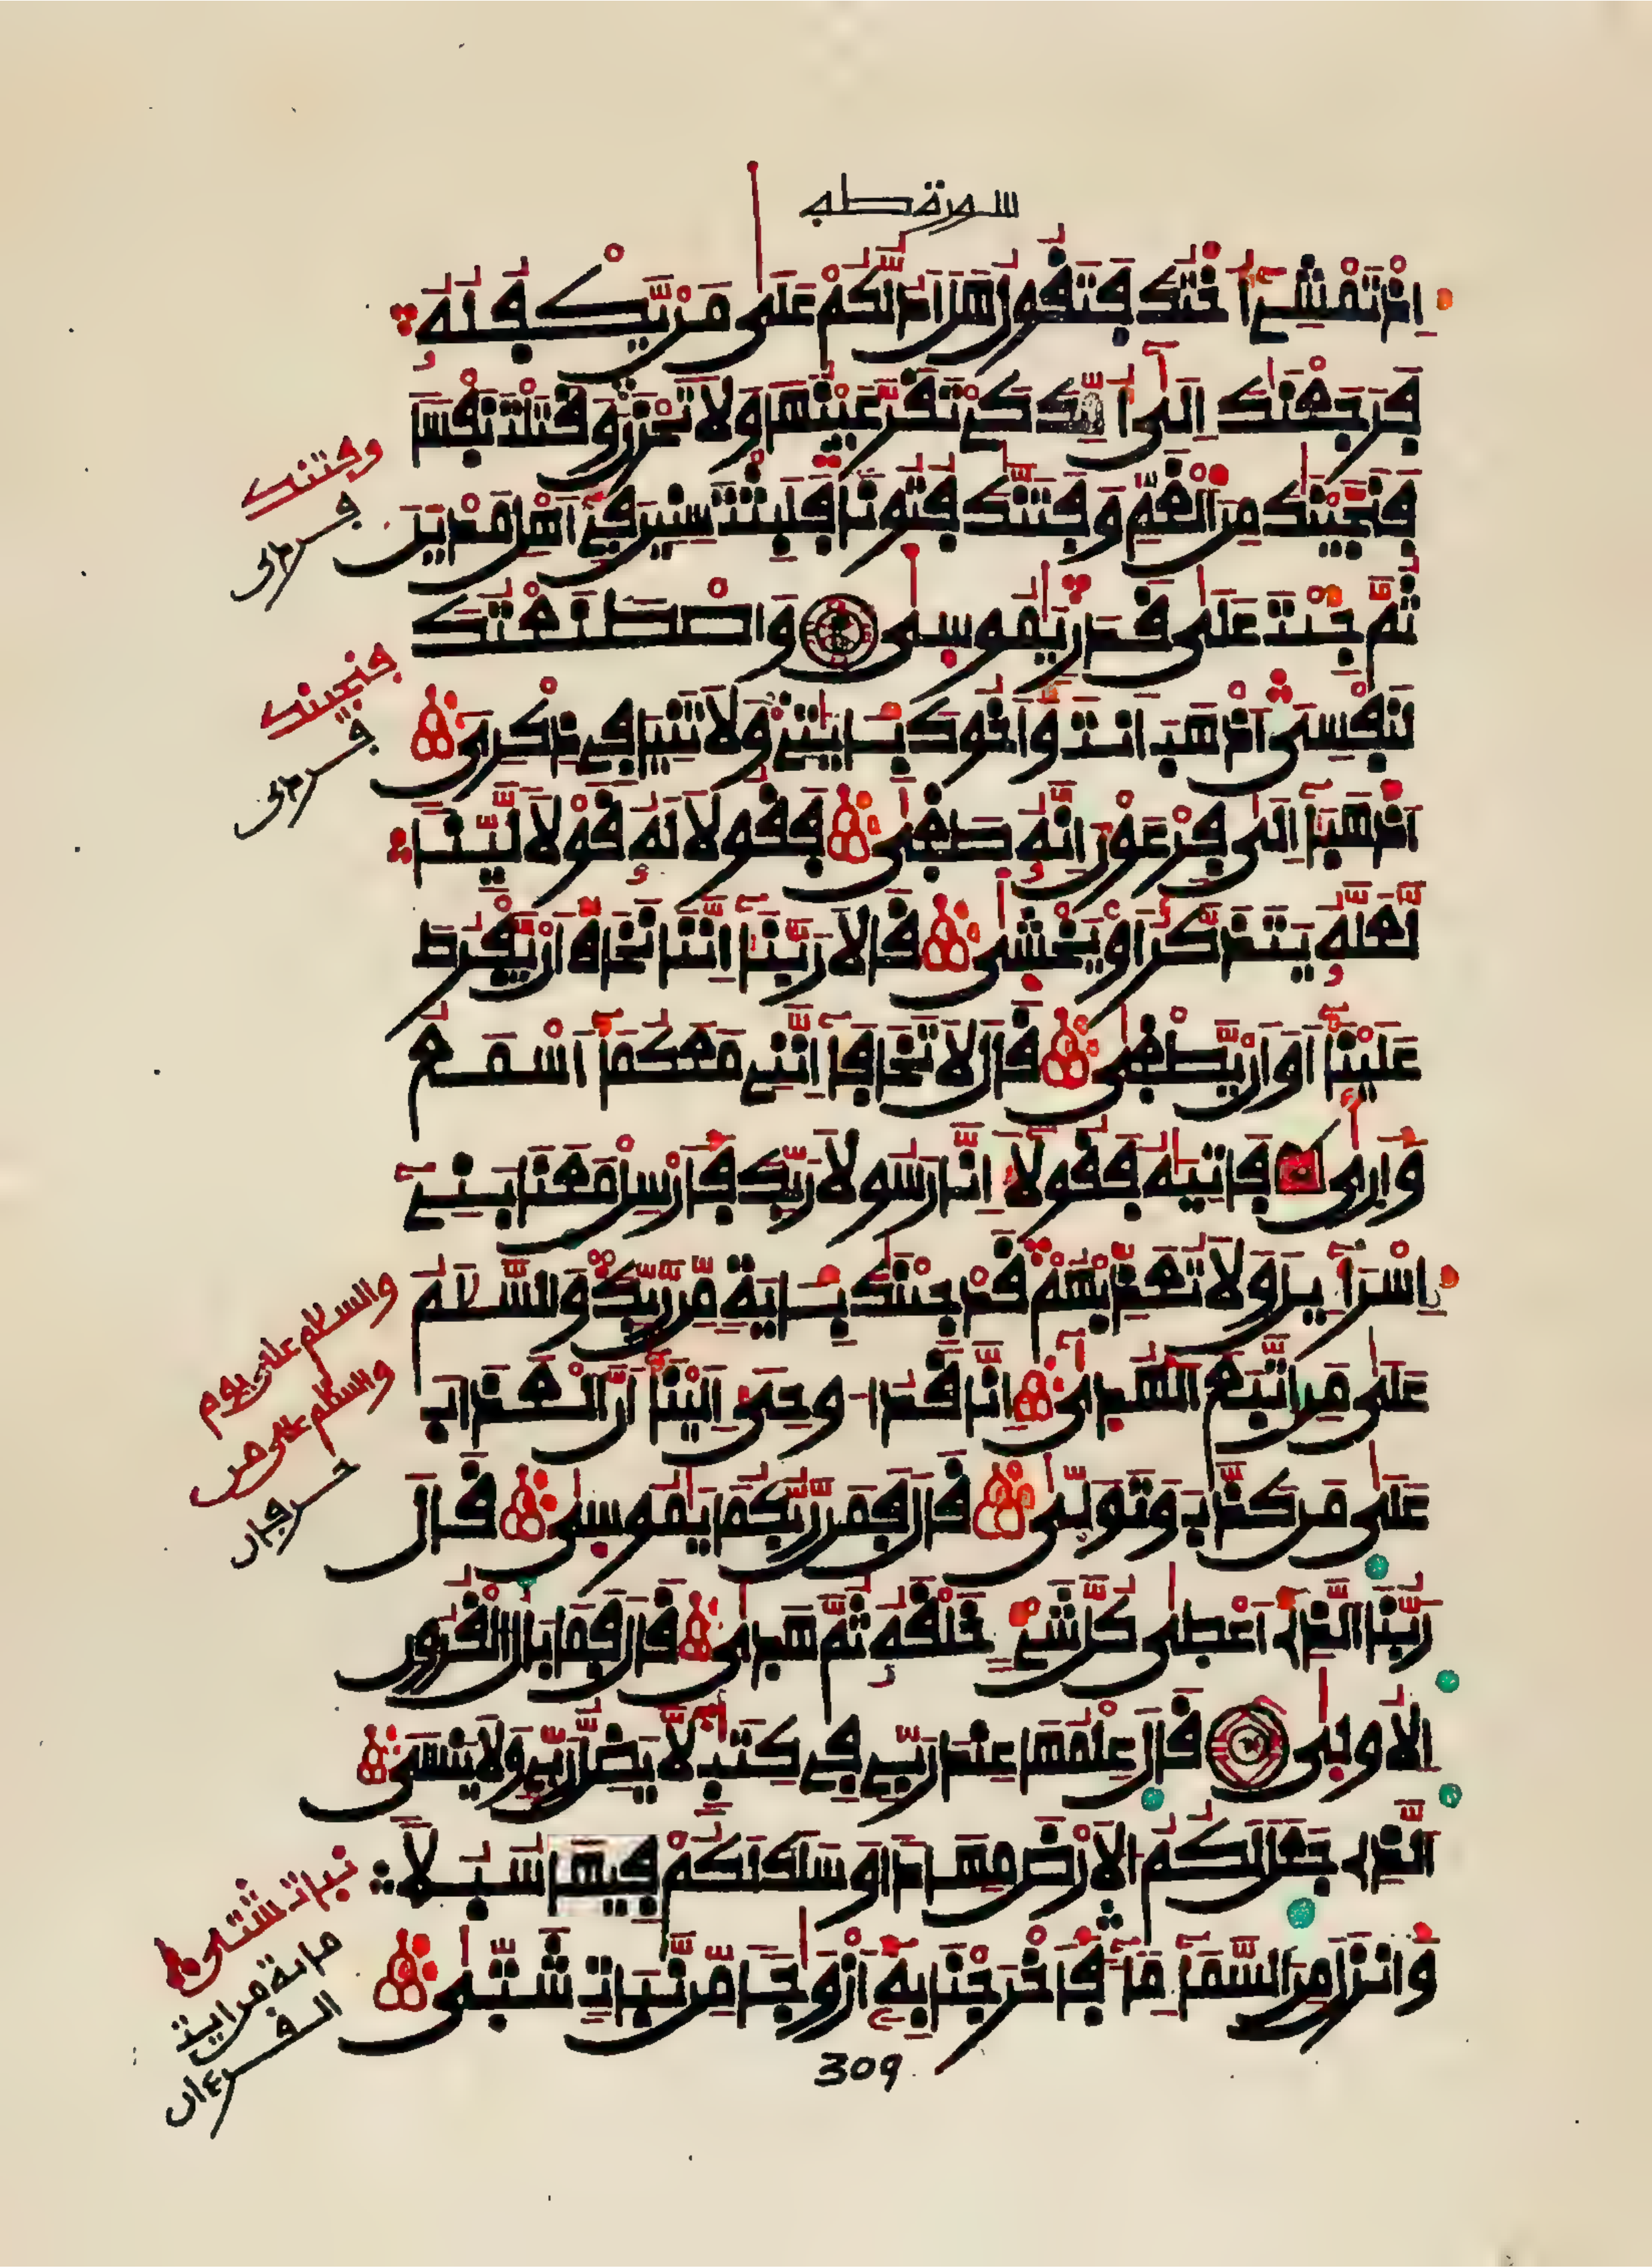 سورة طه
إذ تمشي أختك فتقول هل أدلكم على من يكفله
فرجعنك إلى أمك كي تقر عينها ولا تحزن وقتلت نفسا
فنجينك من الغم وفتنك فتونا فلبثت سنين في أهل مدين
ثم جئت على قدر يموسى واصطنعتك
لنفسي اذهب أنت وأخوك بايتي ولا تنيا في ذكري
اذهبا إلى فرعون إنه طغى فقولا له قولا لينا
لعله يتذكر أو يخشى قالا ربنا إننا نخاف أن يفرط
علينا أو أن يطغى قال لا تخافا إنني معكما أسمع
وأرى فاتيه فقولا إنا رسولا ربك فأرسل معنا بني
إسراءيل ولا تعذبهم قد جئنك باية من ربك والسلم
على من اتبع الهدى إنا قد اوحي إلينا أن العذاب
على من كذب وتولى قال فمن ربكما يموسى قال
ربنا الذي أعطى كل شيء خلقه ثم هدى قال فما بال القرون
الاولى قال علمها عند ربي في كتب لا يضل ربي ولا ينسى
الذي جعل لكم الارض مهدا وسلك لكم فيها سبلا
وأنزل من السماء ماء فأخرجنا به أزوجا من نبات شتى
309
وفتنك
فنجينك
والسلم على يوم
والسلم على من
حرفان
نبات شتى
مائة من ايت
القرءان